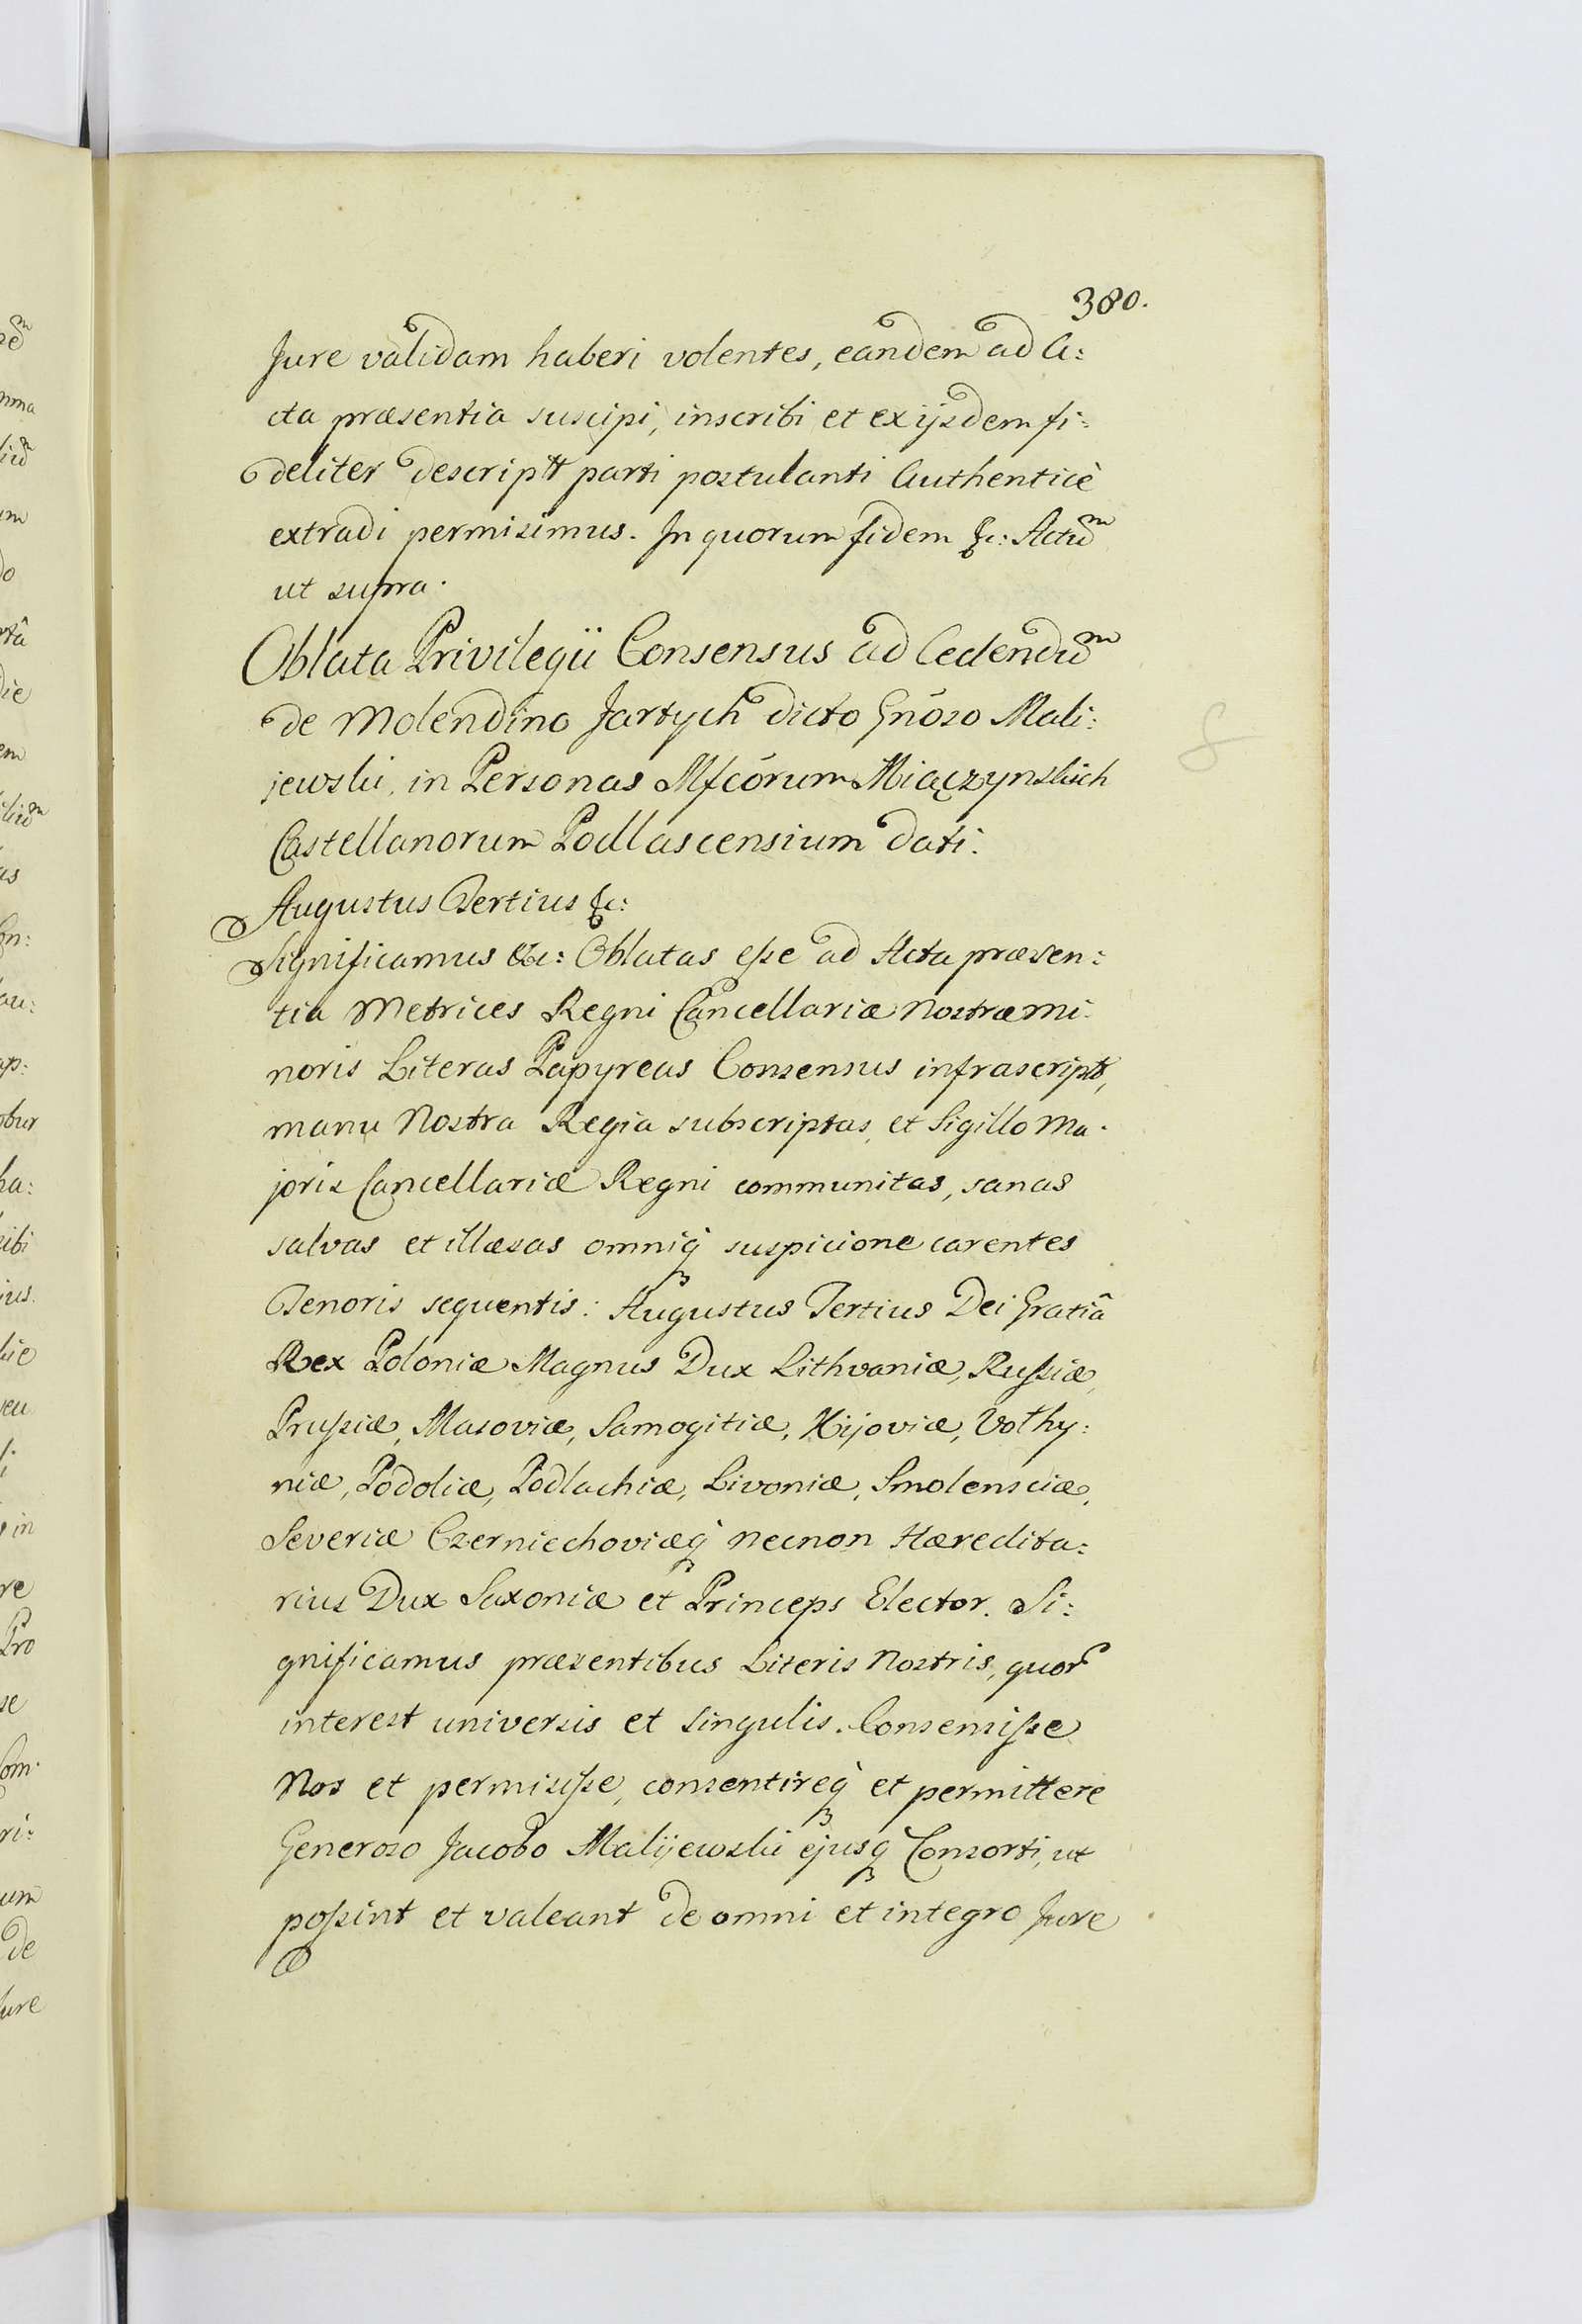 380.
Jure validam haberi volentes, eandem ad A:
cta præsentia suscipi, inscribi et ex ijsdem fi:
deliter descript parti postulanti Authenticè
extradi permisimus. In quorum fidem &c: Actūm
ut supra.
Oblata Privilegii Consensus ad Cedendūm
de Molendino Jartych dicto Gnóso Mali:
jewski, in Personas Mfcórum Miączynskich
Castellanorum Podlascensium dati.
Augustus Tertius &c:
Significamus &c: Oblatas eſse ad Acta præsen:
tia Metrices Regni Cancellariæ Nostræ Mi:
noris Literas Papyreas Consensus infrascript,
manu Nostra Regia subscriptas, et Sigillo Ma:
joris Cancellariæ Regni communitas, sanas
salvas et illæsas omniq́ suspicione carentes
Tenoris sequentis: Augustus Tertius Dei Gratiâ
Rex Poloniæ Magnus Dux Lithvaniæ, Ruſsiæ,
Pruſsiæ, Masoviæ, Samogitiæ, Kijoviæ, Volhy:
niæ, Podoliæ, Podlachiæ, Livoniæ, Smolensciæ,
Severiæ Czerniechoviæq́ necnon Hæredita:
rius Dux Saxoniæ et Princeps Elector. Si:
gnificamus præsentibus Literis Nostris, quor
interest universis et singulis. Consensiſse
Nos et permisiſse, consentireq́ et permittere
Generoso Jacobo Malijewski ejusq́ Consorti, ut
poſsint et valeant de omni et integro Jure
8